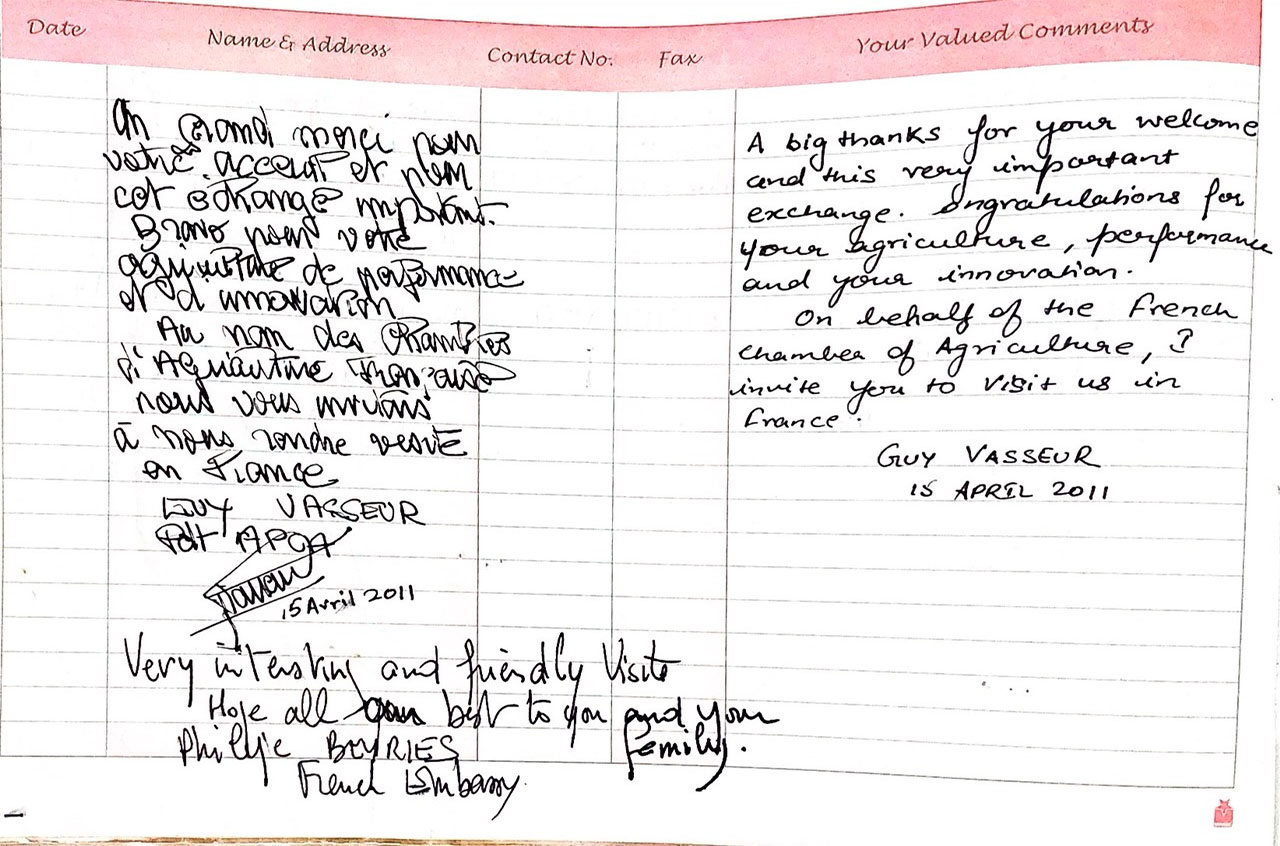 Date Name & Address Contact No. Fax Your Valued Comments
Un Grand merci pour
votre accueil et pour
cet échange important.
Bravo pour votre
agriculture de performance
et d'innovation
Au nom des Chambres
d'Agriculture Françaises
nous vous invitons
à nous rendre visite
en France
GUY VASSEUR
Pdt APCA
15 Avril 2011
A big thanks for your welcome
and this very important
exchange. ongratulations for
your agriculture, performance
and your innovation.
On behalf of the French
chamber of Agriculture, I
invite you to visit us in
France.
GUY VASSEUR
15 APRIL 2011
Very intersting and friendly Visite
Hope all best to you and your
family.
Philippe BEYRIES
French Embassy